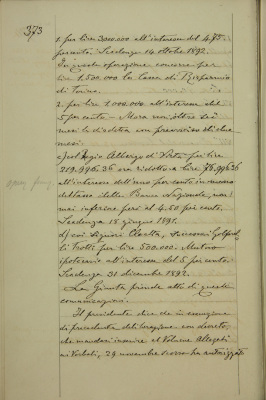 373
1. per lire 3000.000 all'interesse del 4.75
percento. Scadenza 14 ottobre 1892.
In queste operazione concorre per
lire 1.500.000 la Cassa di Risparmio
di Torino.
2. per lire 1.000.000 all'interesse del
5 per cento - Mora non oltre sei
mesi la disdetta con preavviso di due
mesi.
c) col Regio Albergo di Virtù per lire
all'interesse dell'uno per cento in meno
della Banca Nazionale, non
mai inferiore però al 4.50 per cento.
Scadenza 18 giugno 1891.
d) coi Signori
Trotti per lire 500.000. Mutuo
ipotecario all'interesse del 5 per cento.
Scadenza 31 dicembre 1892.
La Giunta prende atto di queste
comunicazioni.
Il presidente dice che in esecuzione
di precedente deliberazione con decreto,
che mandasi inserire al Volume Allegati
ai Verbali, 29 novembre scorso ha autorizzato